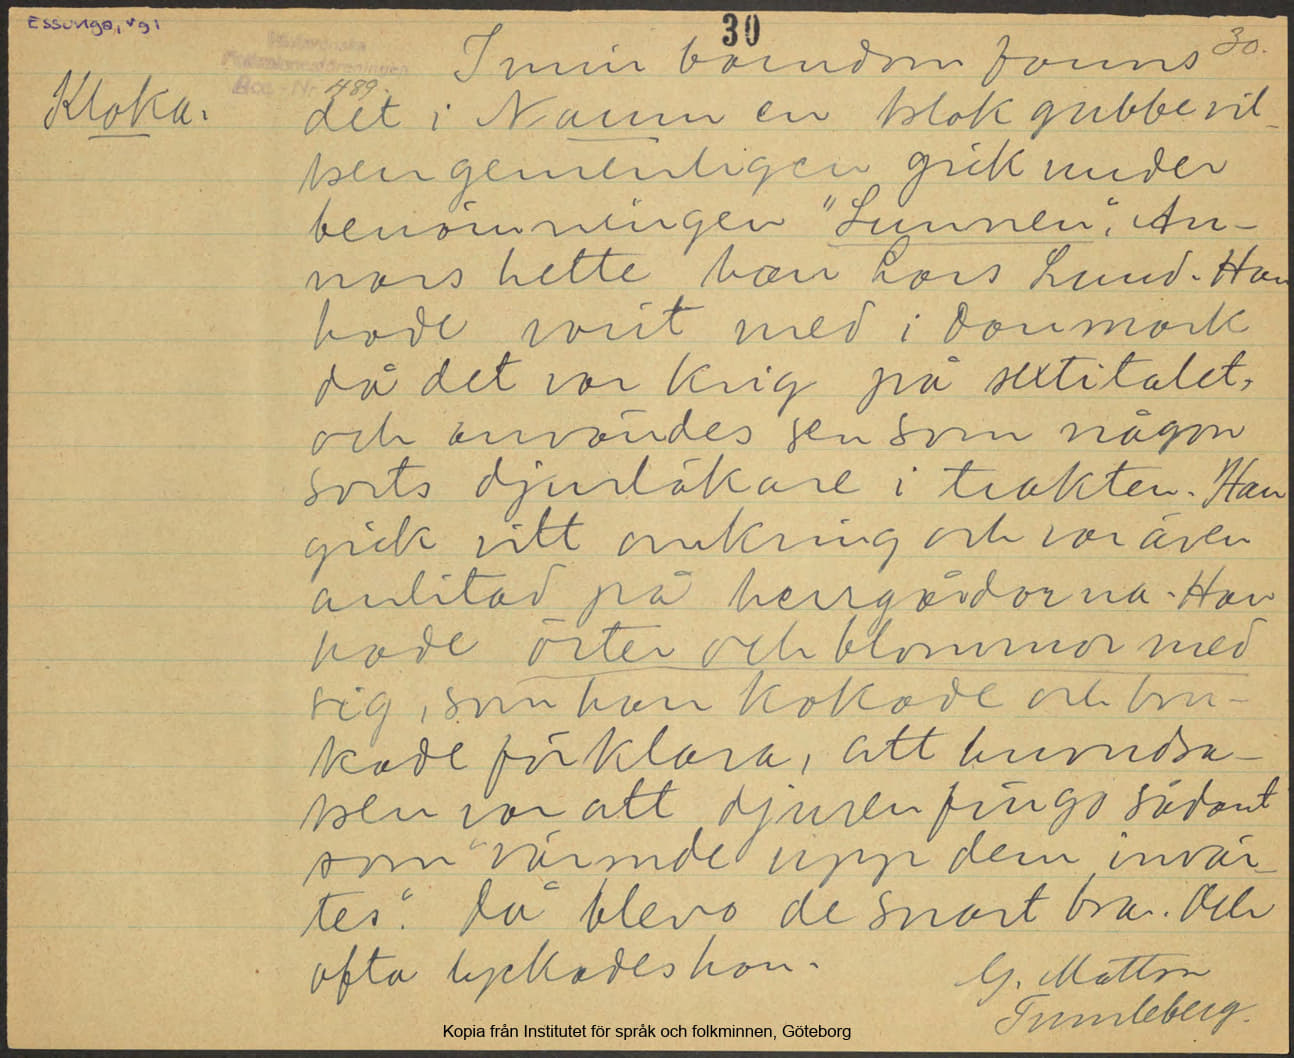 Essunga, Vgl
30
30.
Västsvenska
Folkminnesföreningen
Acc.-Nr. 489.
Kloka.
I min barndom fanns
det i Naum en klok gubbe vil-
ken gemenligen gick under
benämningen "Lunnen". An-
nars hette han Lars Lund. Han
hade varit med i Danmark
då det var krig på sextitalet,
och användes sen som någon
sorts djurläkare i trakten. Han
gick vitt omkring och var även
anlitad på herrgårdarna. Han
hade örter och blommor med
sig, som han kokade och bru-
kade förklara, att huvudsa-
ken var att djuren fingo sådant
som "värmde upp dem invär-
tes". Då blevo de snart bra. Och
ofta lyckades han.
G. Mattson
Tumleberg.
Kopia från Institutet för språk och folkminnen, Göteborg